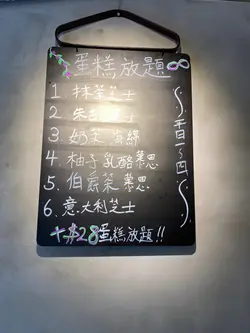 蛋糕放題∞
1 抹茶芝士
2 朱古
3 奶茶海綿
4 柚子乳酪慕思
5. 伯爵茶慕思
6. 意大利芝士
+$28蛋糕放題!!
平日一~四